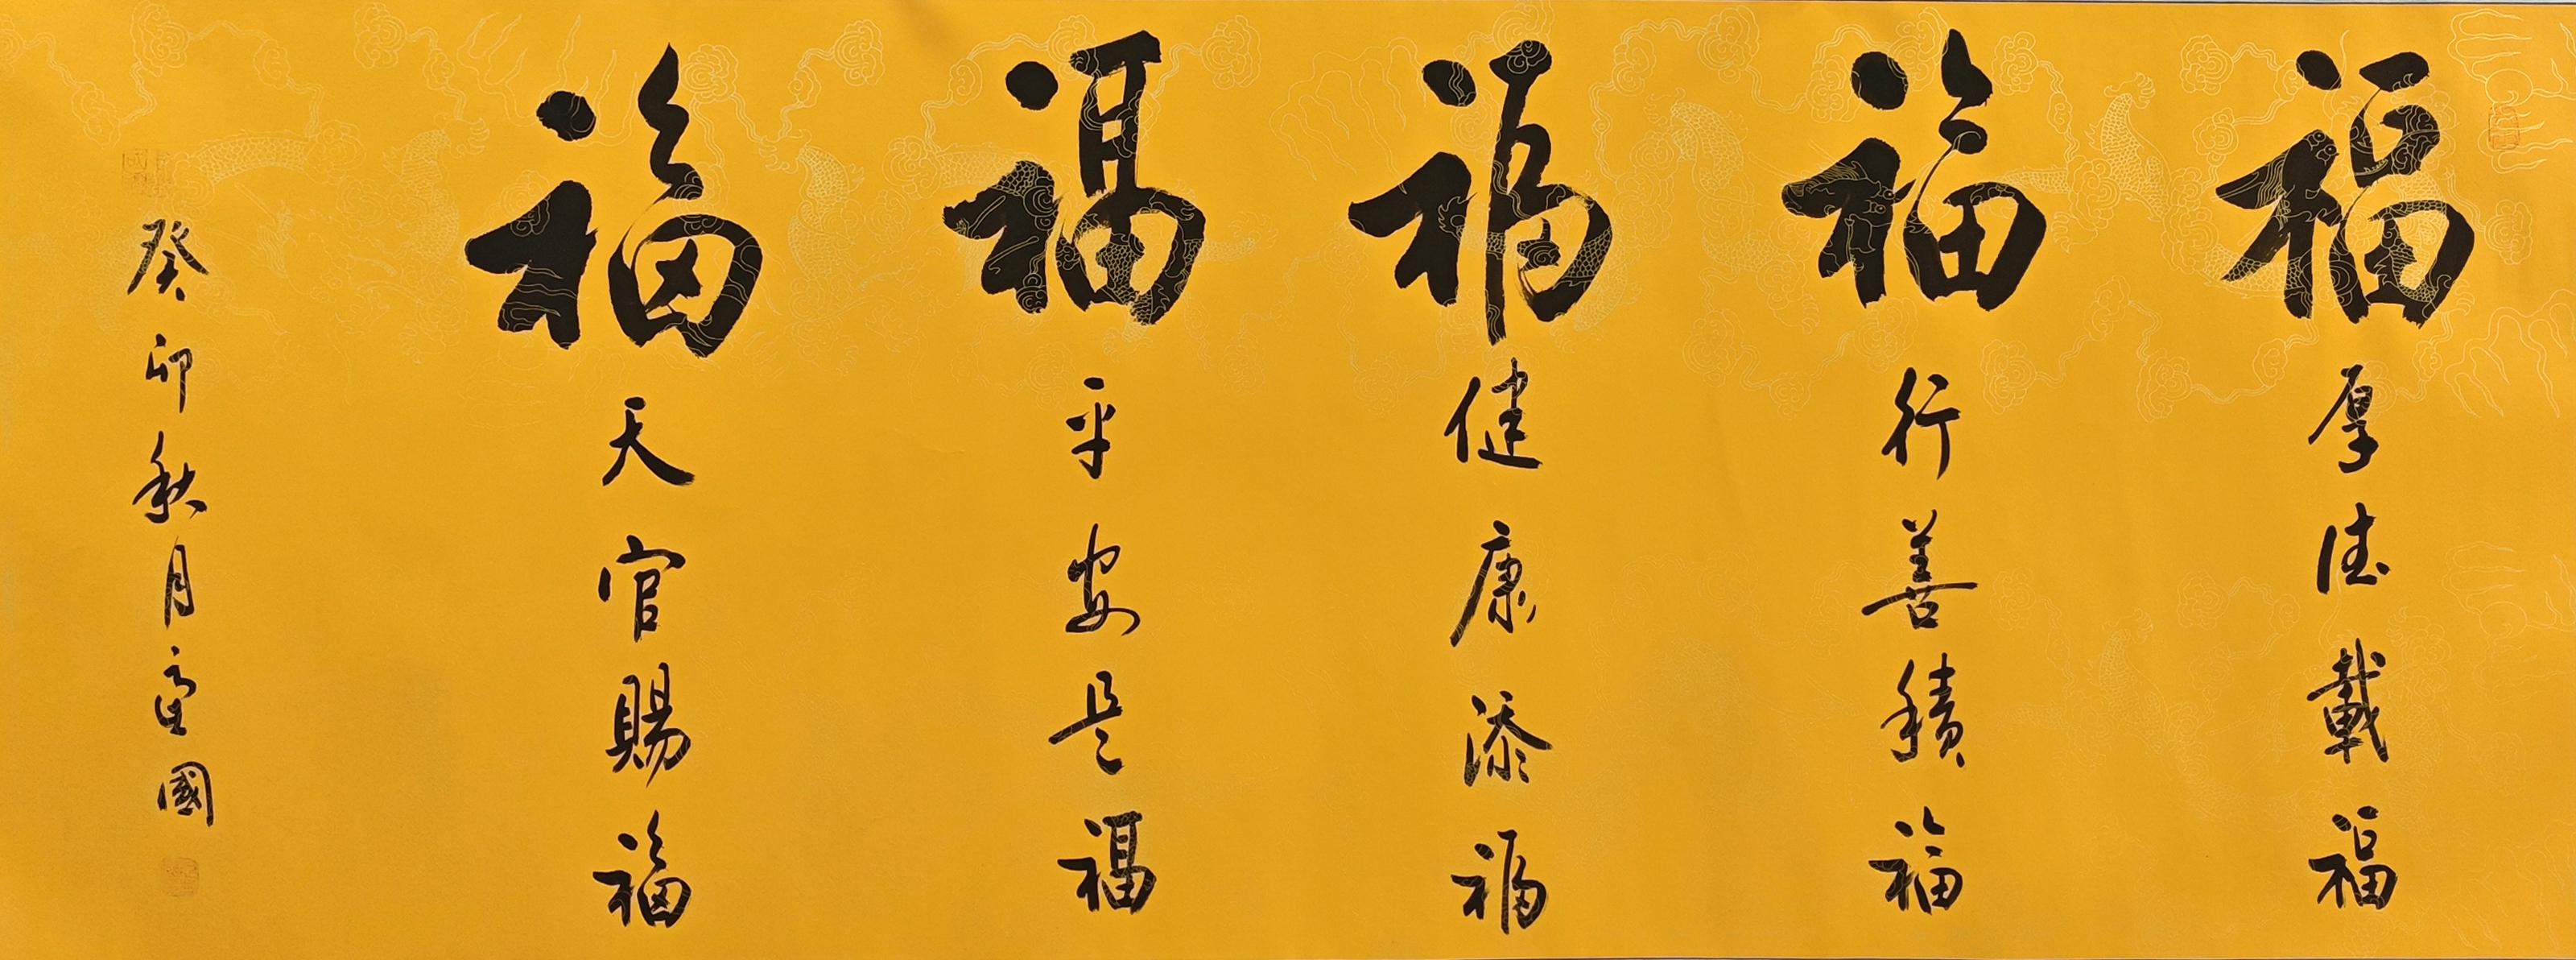 福 厚德載福
福 行善積福
福 健康添福
福 平安是福
福 天官賜福
癸卯秋月 國